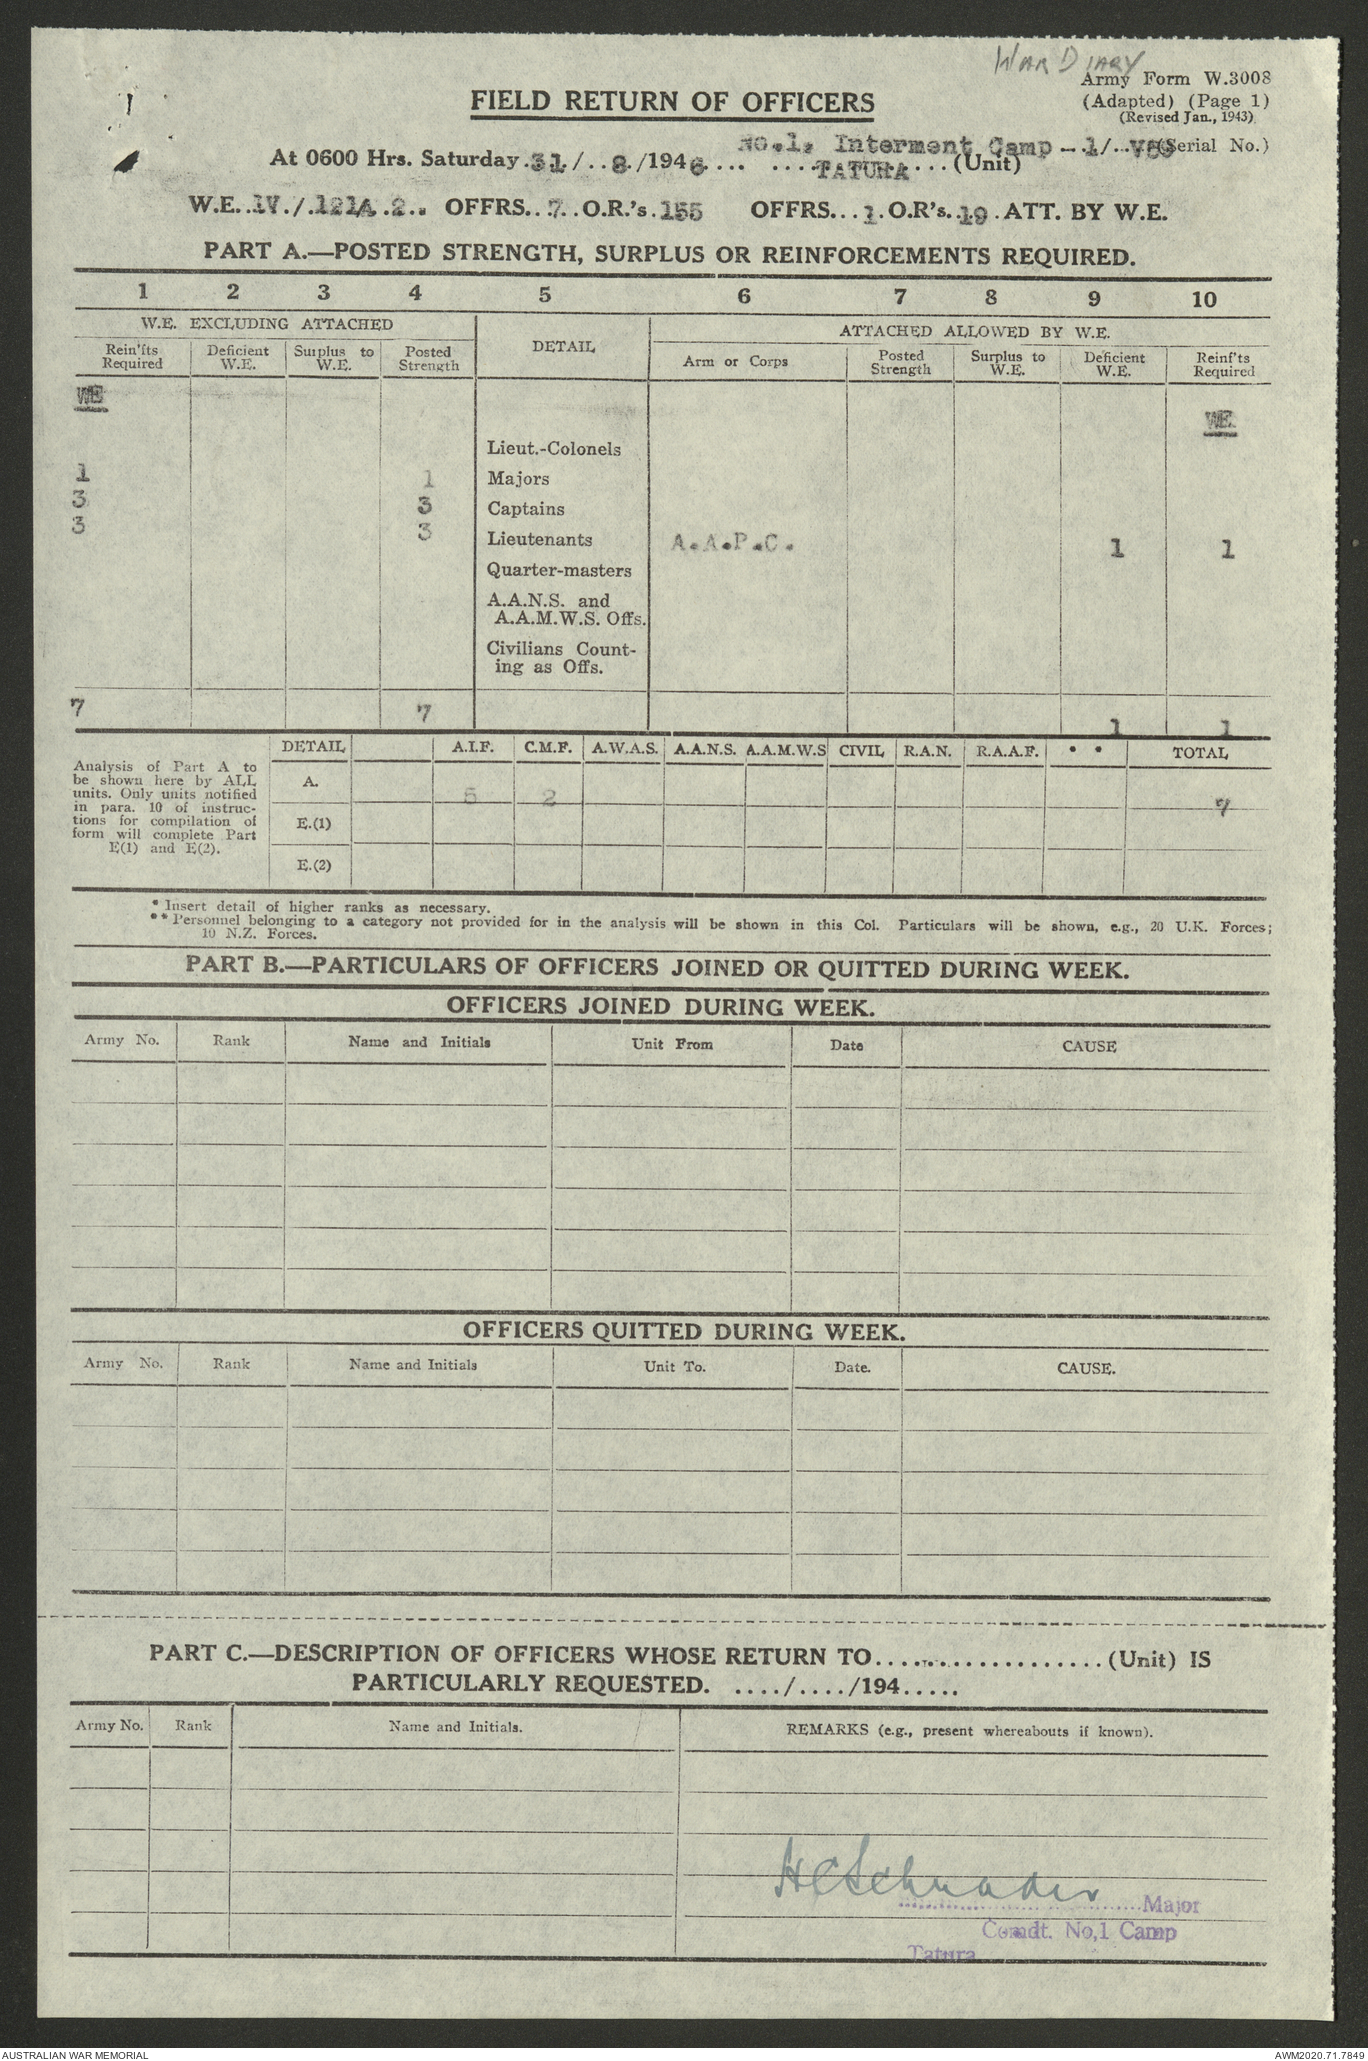 WAR DIARY
Army Form W.3008
(Adapted) (Page 1)
(Revised Jan., 1943)
FIELD RETURN OF OFFICERS
No.1, Interment Camp
At 0600 Hrs. Saturday.31/..8./1946.... ....TATURA...(Unit) -.1/..V53(Serial No.)
W.E..IV./.121A..2.. OFFRS...7..O.R.'s.155 OFFRS...1.O.R's..19.ATT. BY W.E.
PART A.—POSTED STRENGTH, SURPLUS OR REINFORCEMENTS REQUIRED.
1 2 3 4 5 6 7 8 9 10
W.E. EXCLUDING ATTACHED DETAIL ATTACHED ALLOWED BY W.E.
Rein'fts Required Deficient W.E. Surplus to W.E. Posted Strength Arm or Corps Posted Strength Surplus to W.E. Deficient W.E. Reinf'ts Required
WE WE.
Lieut.-Colonels
1 1 Majors
3 3 Captains
3 3 Lieutenants A.A.P.C. 1 1
Quarter-masters
A.A.N.S. and
A.A.M.W.S. Offs.
Civilians Count-
ing as Offs.
7 7 1 1
DETAIL A.I.F. C.M.F. A.W.A.S. A.A.N.S. A.A.M.W.S CIVIL R.A.N. R.A.A.F. * * TOTAL
Analysis of Part A to
be shown here by ALL
units. Only units notified
in para. 10 of instruc-
tions for compilation of
form will complete Part
E(1) and E(2).
A. 5 2 7
E.(1)
E.(2)
* Insert detail of higher ranks as necessary.
** Personnel belonging to a category not provided for in the analysis will be shown in this Col. Particulars will be shown, e.g., 20 U.K. Forces;
10 N.Z. Forces.
PART B.—PARTICULARS OF OFFICERS JOINED OR QUITTED DURING WEEK.
OFFICERS JOINED DURING WEEK.
Army No. Rank Name and Initials Unit From Date CAUSE
OFFICERS QUITTED DURING WEEK.
Army No. Rank Name and Initials Unit To. Date. CAUSE.
PART C.—DESCRIPTION OF OFFICERS WHOSE RETURN TO......................(Unit) IS
PARTICULARLY REQUESTED. ..../..../194.....
Army No. Rank Name and Initials. REMARKS (e.g., present whereabouts if known).
Major
Comdt. No,1 Camp
Tatura
AUSTRALIAN WAR MEMORIAL
AWM2020.71.7849